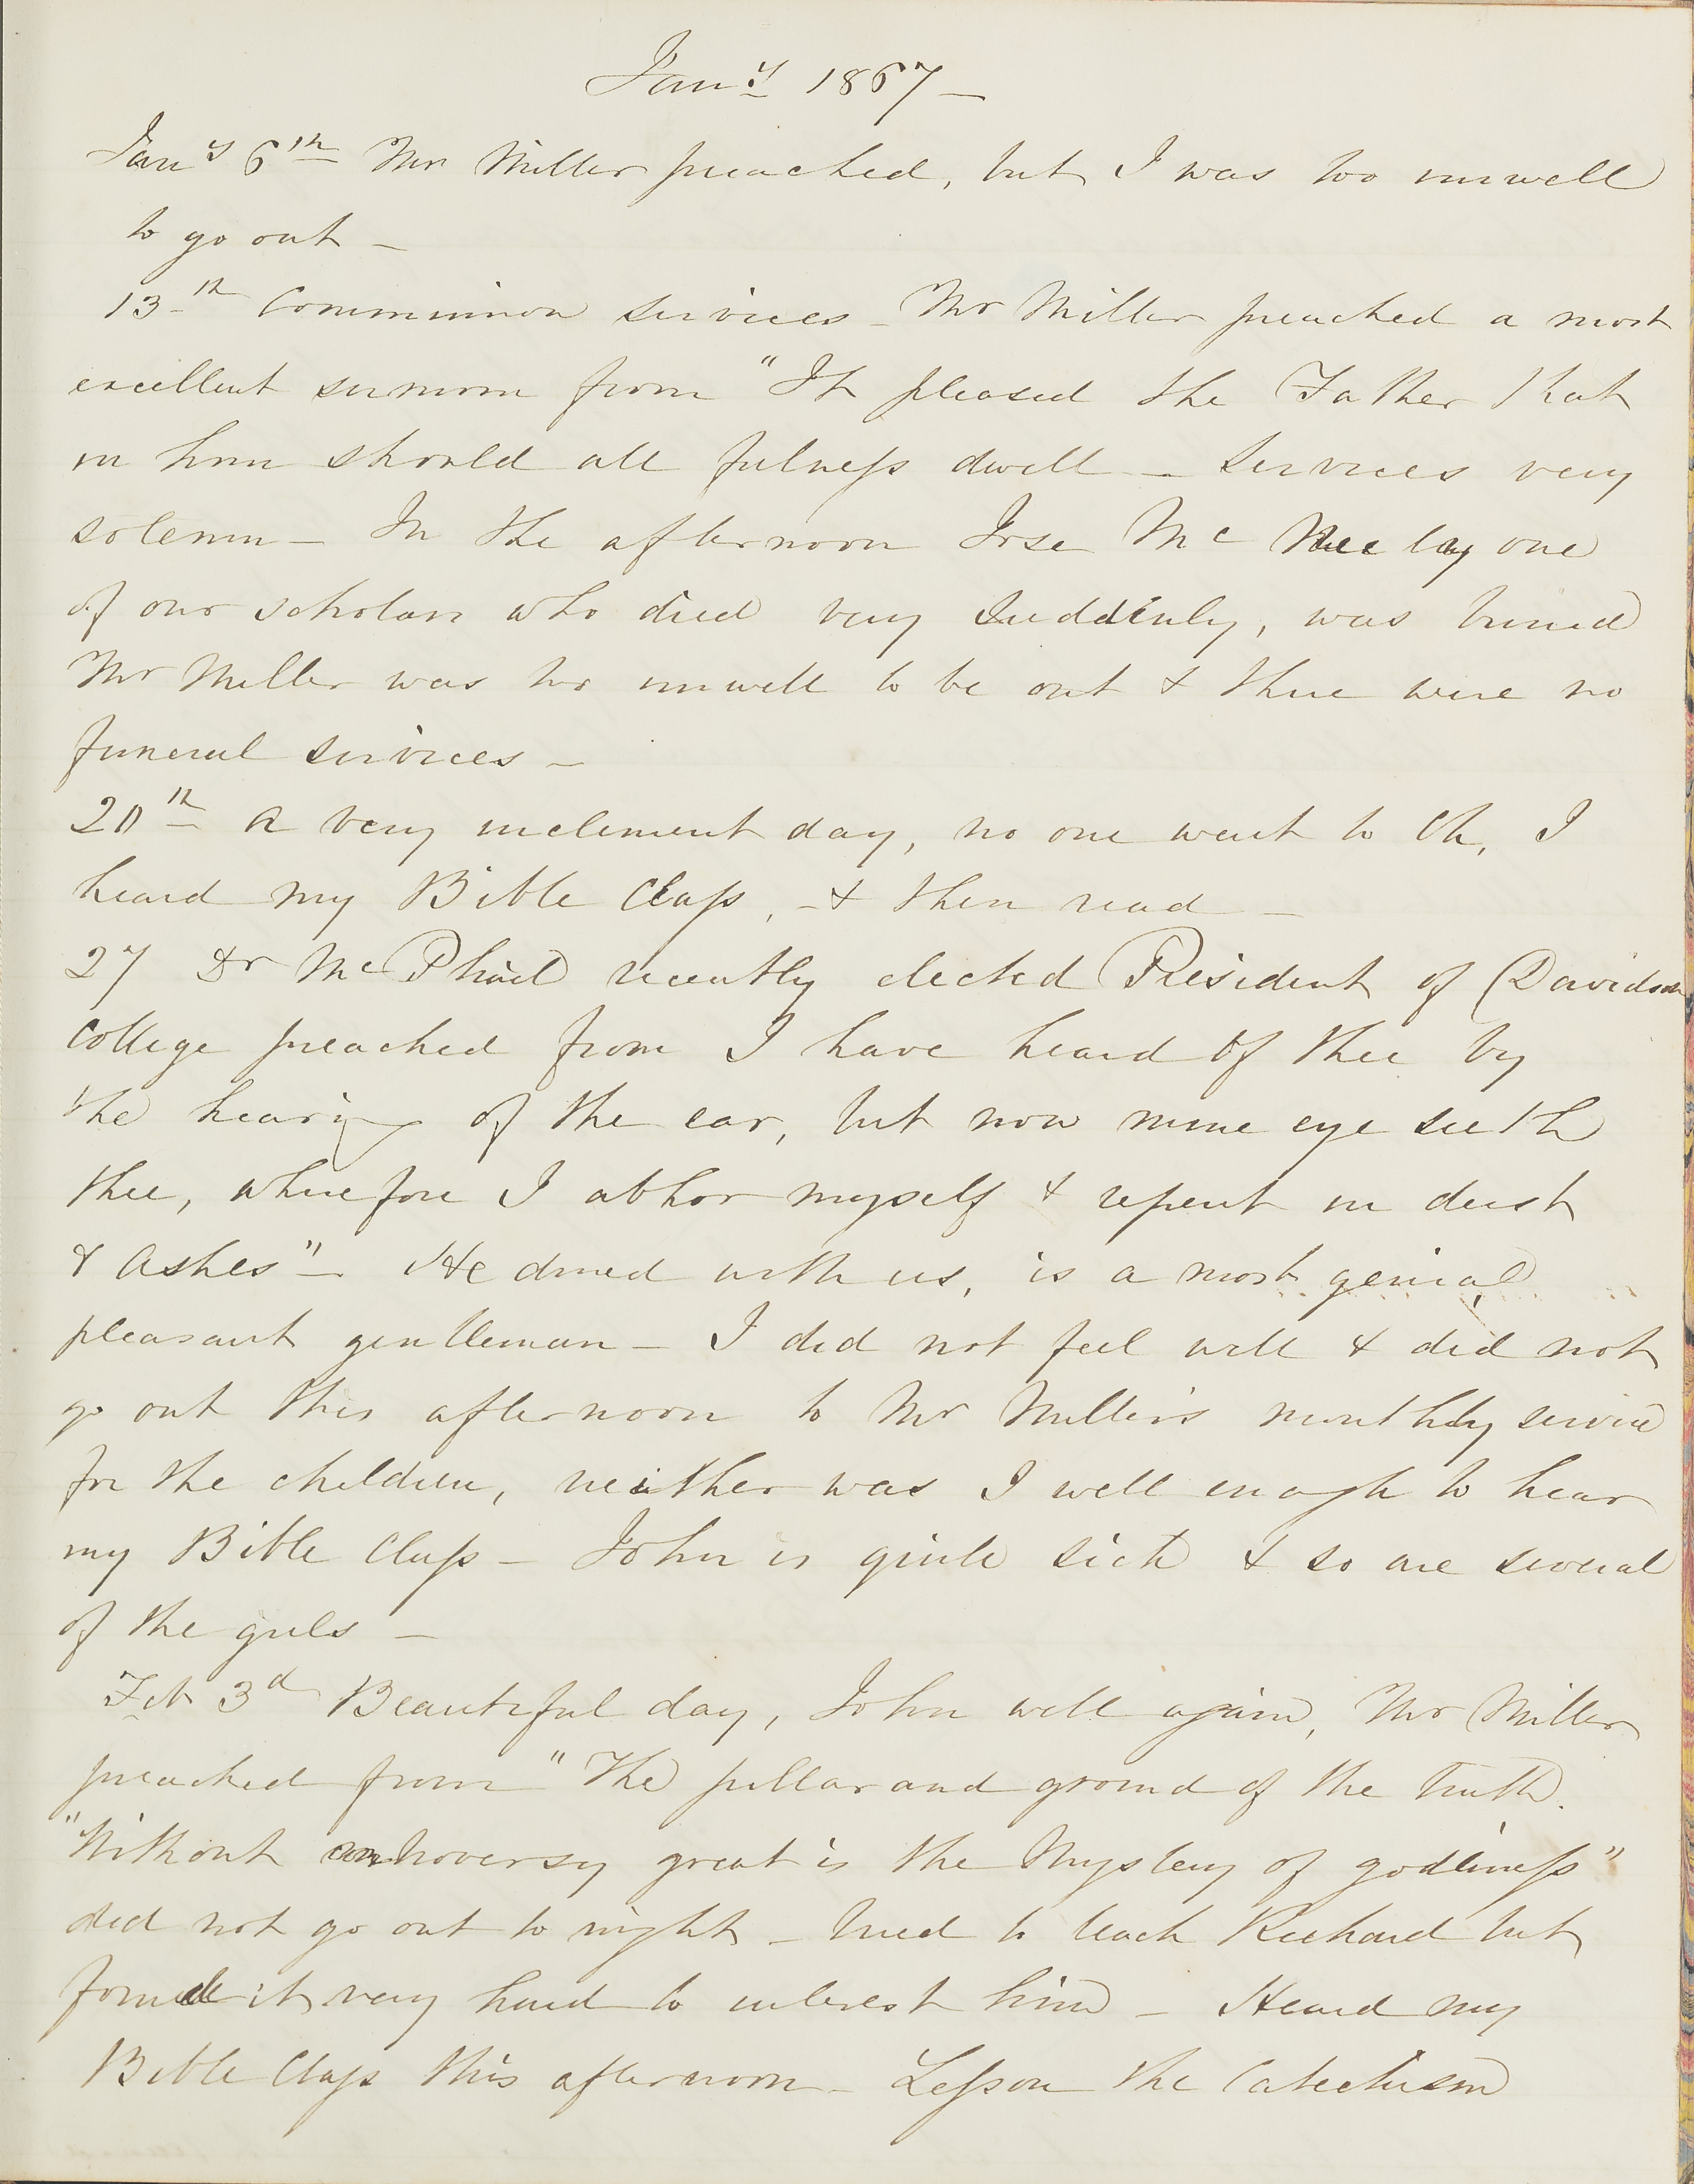 Jany 1867 —
Jany 6th Mr Miller preached, but I was too unwell
to go out —
13th Communion services — Mr Miller preached a most
excellent sermon from "It pleased the Father that
in him should all fulness dwell — Services very
solemn — In the afternoon Irse McNeelay one
of our scholars who died very suddenly, was buried
Mr Miller was too unwell to be out & there were no
funeral services —
20th A very inclement day, no one went to Ch, I
heard my Bible Class, & then read —
27 Dr McPhail recently elected President of Davidson
College preached from I have heard of thee by
the hearing of the ear, but now mine eye seeth
thee, wherefore I abhor myself & repent in dust
& ashes" — He dined with us, is a most genial,
pleasant gentleman — I did not feel well & did not
go out this afternoon to Mr Miller's monthly service
for the children, neither was I well enough to hear
my Bible Class — John is quite sick & so are several
of the girls —
Feb 3d Beautiful day, John well again, Mr Miller
preached from "The pillar and ground of the truth.
"Without controversy great is the Mystery of godliness"
did not go out to night — tried to teach Richard but
found it very hard to interest him — Heard my
Bible Class this afternoon — Lesson the Catechism